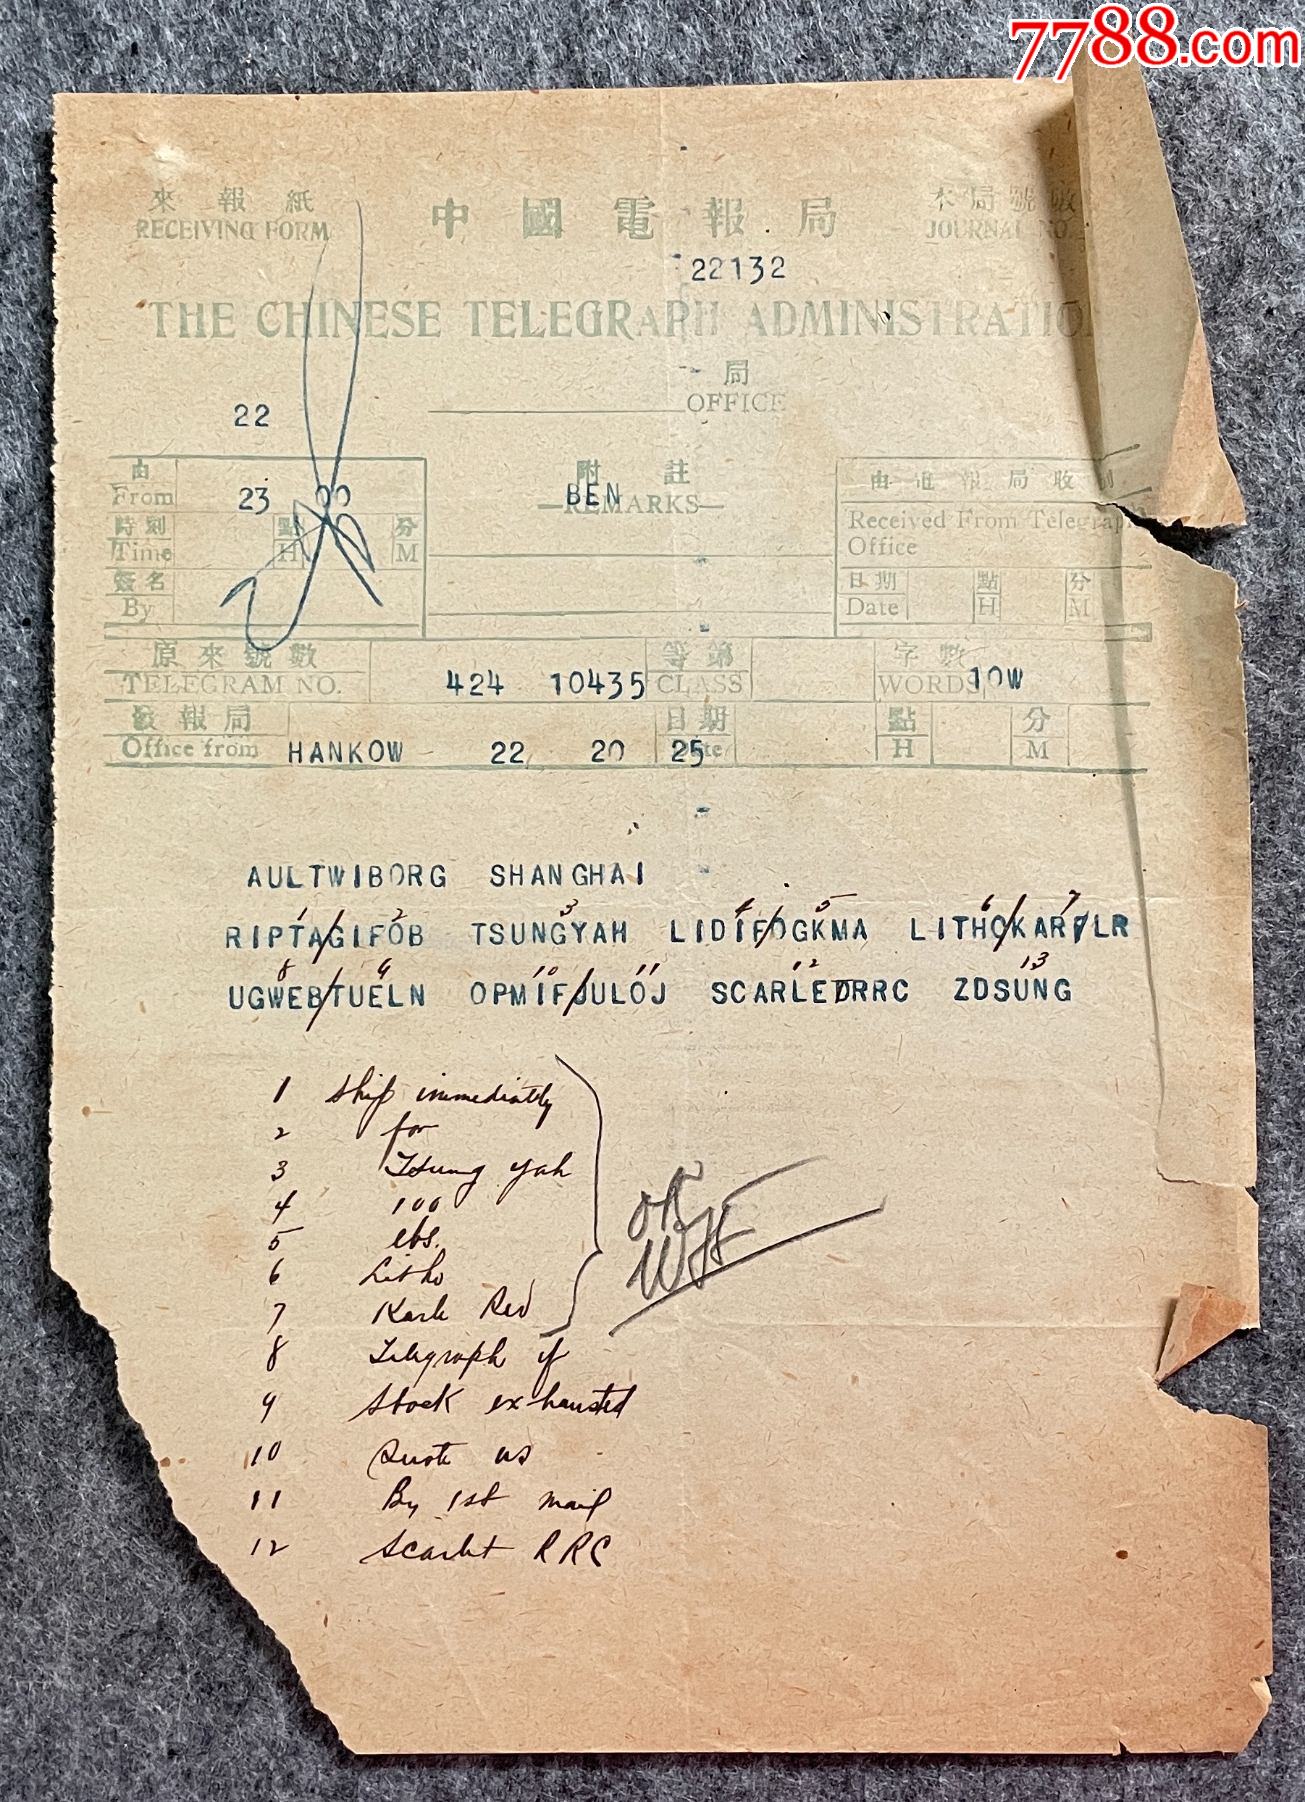 7788.com
來報紙 中國電報局 本局號數
RECEIVING FORM JOURNAL NO.
22132
THE CHINESE TELEGRAPH ADMINISTRATION
局
22 OFFICE
由 附註 由 報局收
From 23 00 BEN REMARKS Received From Telegraph
時刻 點 分 Office
Time H M 日期 點 分
簽名 Date H M
By
原來號數 等第 字數
TELEGRAM NO. 424 10435 CLASS WORDS 10W
發報局 日期 點 分
Office from HANKOW 22 20 25 H M
AULTWIBORG SHANGHAI
1 2 3 4 5 6 7
RIPTAGIFOB TSUNGYAH LIDIFOGKMA LITHOKARFLR
8 9 10 11 12 13
UGWEBTUELN OPMIFJULOJ SCARLEDRRC ZDSUNG
1 Ship immediately
2 for
3 Tsung Yah
4 100
5 lbs.
6 Litho
7 Red
OK
8 Telegraph if
9 Stock exhausted
10 Quote us
11 By 1st mail
12 Scarlet RRC